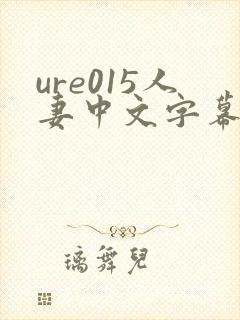 ure015人
妻中文字幕
璃舞兒